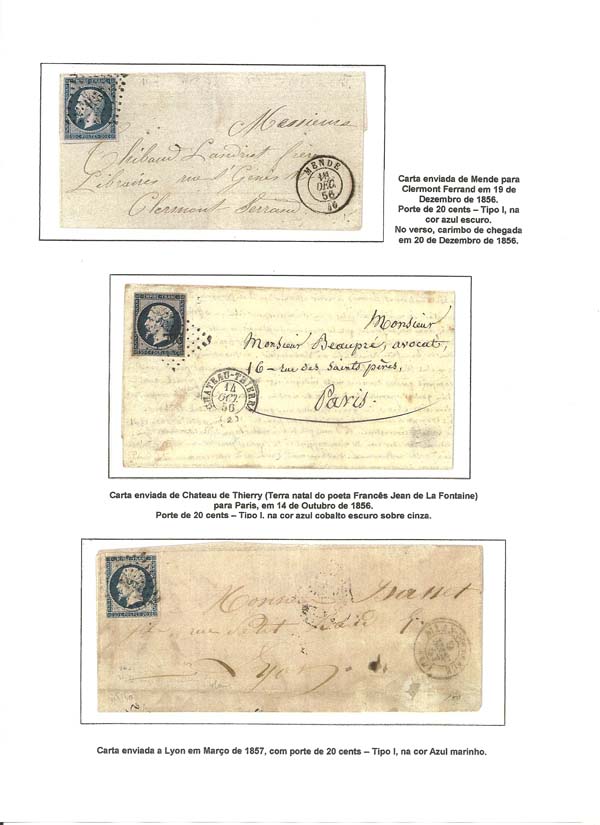 EMPIRE FRANC
20C POSTES 20C
Messieurs
Thibaud Landriot frères
Libraires rue St Genès
Clermont Ferrand
MENDE
19
DEC.
56
Carta enviada de Mende para
Clermont Ferrand em 19 de
Dezembro de 1856.
Porte de 20 cents – Tipo I, na
cor azul escuro.
No verso, carimbo de chegada
em 20 de Dezembro de 1856.
EMPIRE FRANC
20C POSTES 20C
Monsieur
Monsieur Beaupré, avocat,
16 – rue des Saints pères,
Paris.
CHATEAU-THIERRY
14
OCT.
56
(2)
Carta enviada de Chateau de Thierry (Terra natal do poeta Francês Jean de La Fontaine)
para Paris, em 14 de Outubro de 1856.
Porte de 20 cents – Tipo I, na cor azul cobalto escuro sobre cinza.
EMPIRE FRANC
20C POSTES 20C
Lyon
Carta enviada a Lyon em Março de 1857, com porte de 20 cents – Tipo I, na cor Azul marinho.